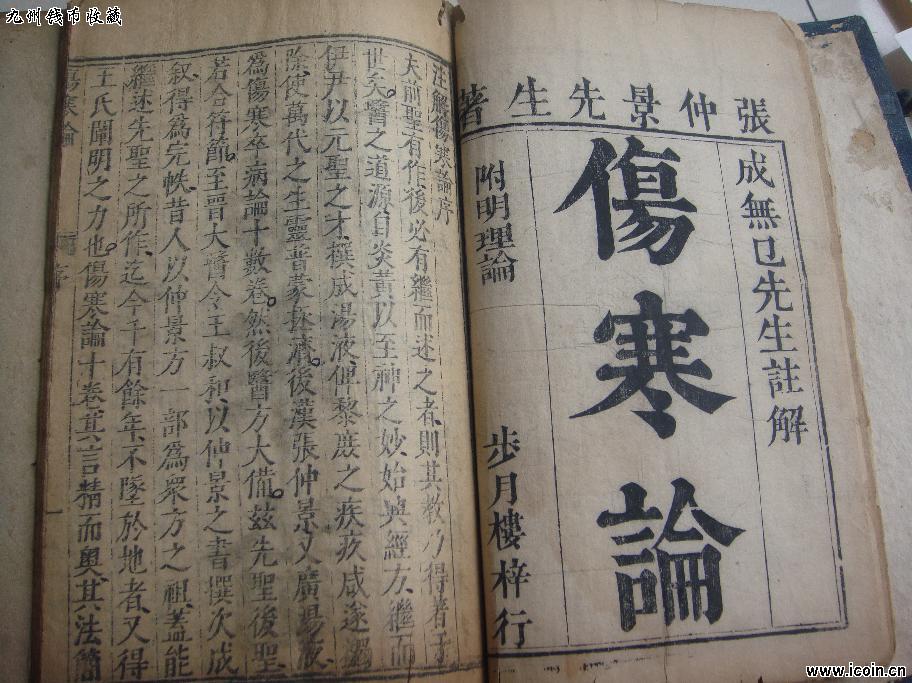 九州钱币收藏
張仲景先生著
成無已先生註解
傷寒論
附明理論
步月樓梓行
注解傷寒論序
夫前聖有作後必有繼而述之者則其教乃得著于
世矣醫之道源自炎黃以至神之妙始興經方繼而
伊尹以元聖之才撰成湯液俾黎庶之疾疚咸遂蠲
除使萬代之生靈普蒙拯濟後漢張仲景又廣湯液
爲傷寒卒病論十數卷然後醫方大備茲先聖後聖
若合符節至晉太醫令王叔和以仲景之書撰次成
叙得爲完帙昔人以仲景方一部爲眾方之祖蓋能
繼述先聖之所作迄今千有餘年不墜於地者又得
王氏闡明之力也傷寒論十卷其言精而奧其法簡
傷寒論
序
一
www.icoin.cn